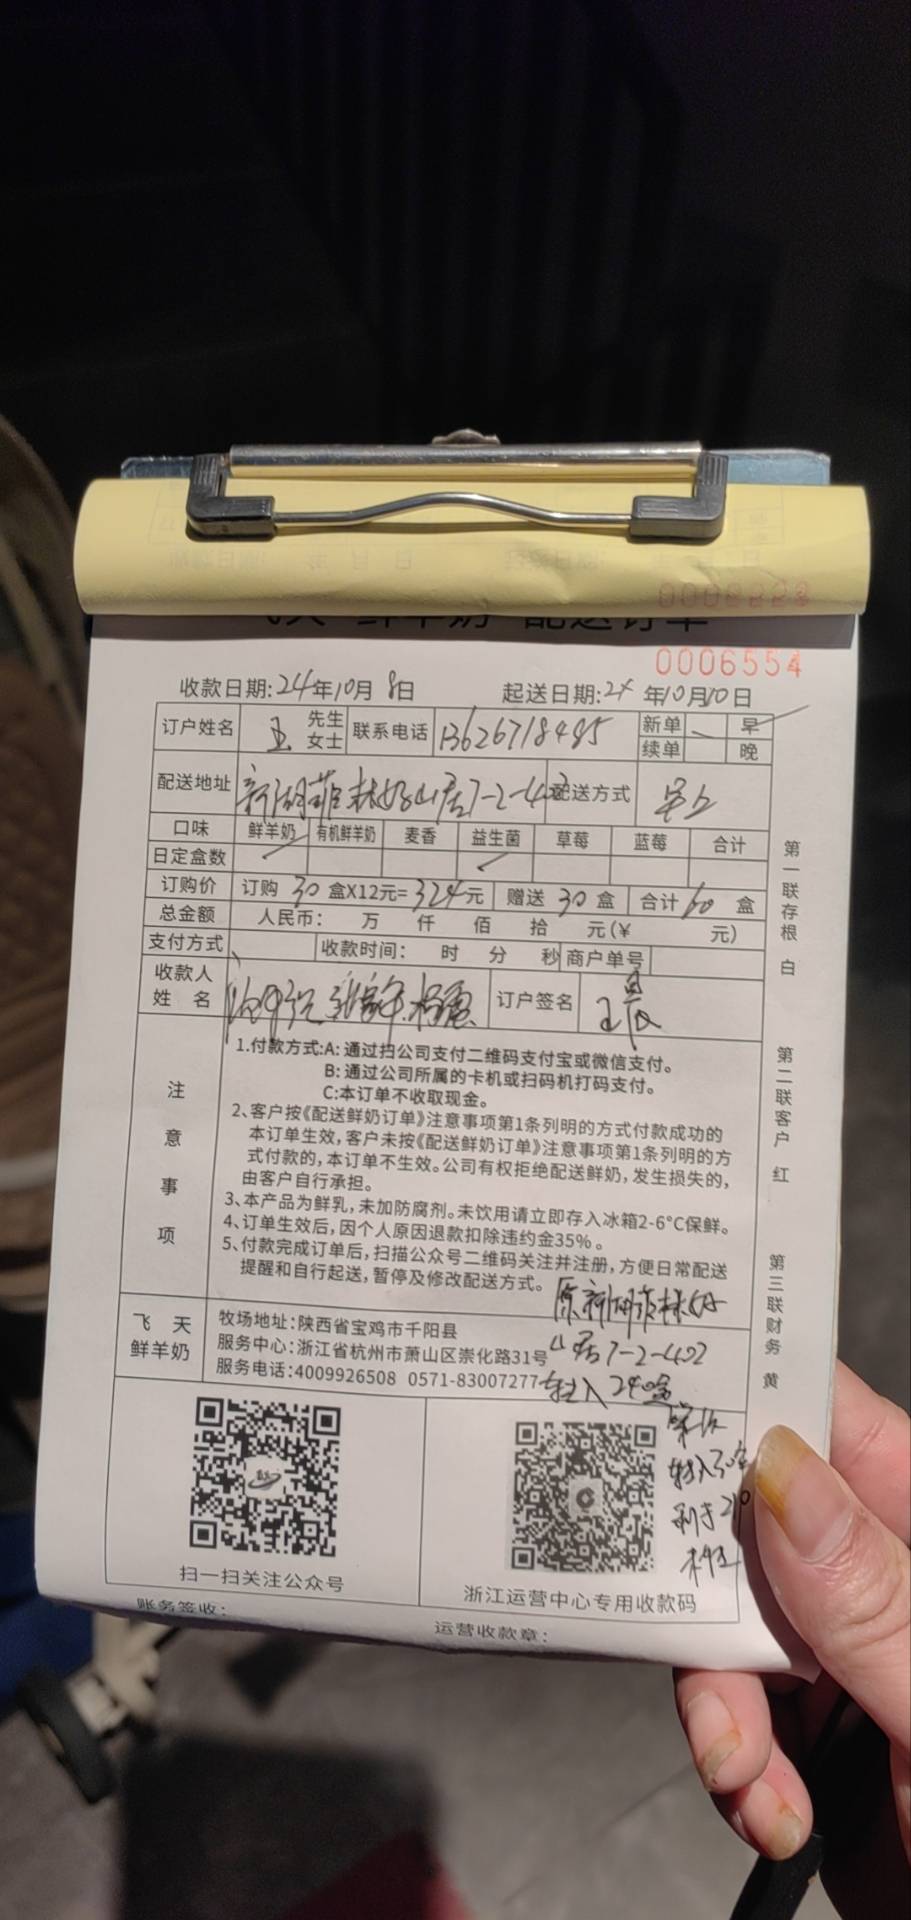 0006554
收款日期:24年10月8日 起送日期:24年10月10日
订户姓名 王 先生 女士 联系电话 13626718485 新单 早
续单 晚
配送地址 新湖菲林奶山居7-2-402 配送方式 早上
口味 鲜羊奶 有机鲜羊奶 麦香 益生菌 草莓 蓝莓 合计
日定盒数
订购价 订购 30 盒X12元=324元 赠送 30 盒 合计60 盒
总金额 人民币: 万 仟 佰 拾 元(¥ 元)
支付方式 收款时间: 时 分 秒 商户单号
收款人
姓 名 订户签名 王晨
注意事项
1.付款方式:A: 通过扫公司支付二维码支付宝或微信支付。
B: 通过公司所属的卡机或扫码机打码支付。
C:本订单不收取现金。
2、客户按《配送鲜奶订单》注意事项第1条列明的方式付款成功的
本订单生效，客户未按《配送鲜奶订单》注意事项第1条列明的方
式付款的，本订单不生效。公司有权拒绝配送鲜奶，发生损失的，
由客户自行承担。
3、本产品为鲜乳，未加防腐剂。未饮用请立即存入冰箱2-6°C保鲜。
4、订单生效后，因个人原因退款扣除违约金35%。
5、付款完成订单后，扫描公众号二维码关注并注册，方便日常配送
提醒和自行起送，暂停及修改配送方式。
原新湖菲林奶
山居7-2-402
转入240盒
转入30盒
飞 天
鲜羊奶
牧场地址:陕西省宝鸡市千阳县
服务中心:浙江省杭州市萧山区崇化路31号
服务电话:4009926508 0571-83007277
扫一扫关注公众号
浙江运营中心专用收款码
账务签收:
运营收款章:
第一联存根 白
第二联客户 红
第三联财务 黄